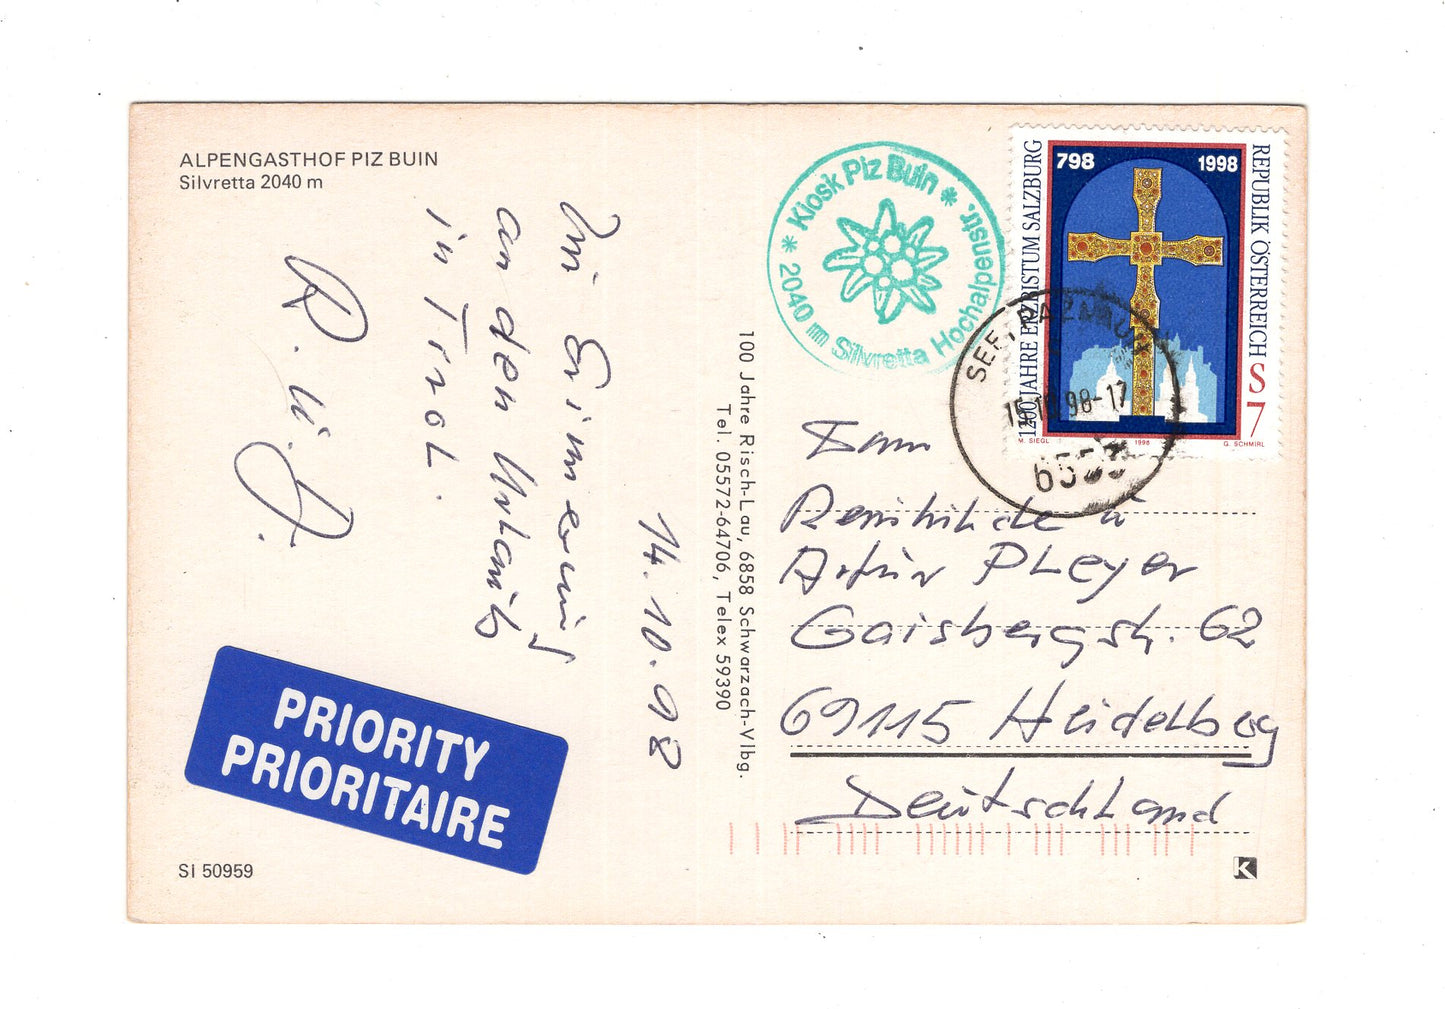 ALPENGASTHOF PIZ BUIN
Silvretta 2040 m
Zur Erinnerung
an den Urlaub
in Tirol.
R. u. A.
14.10.98
PRIORITY
PRIORITAIRE
SI 50959
100 Jahre Risch-Lau, 6858 Schwarzach-Vlbg.
Tel. 05572-64706, Telex 59390
* Kiosk Piz Buin *
2040 m Silvretta Hochalpenstr.
1200 JAHRE ERZBISTUM SALZBURG
798 1998
REPUBLIK ÖSTERREICH
S 7
M. SIEGL 1998 G. SCHMIRL
SEE, PAZNAUN
15.10.98-17
6553
Fam
Reinhilde u
Artur Pleyer
Gaisbergstr. 62
69115 Heidelberg
Deutschland
K